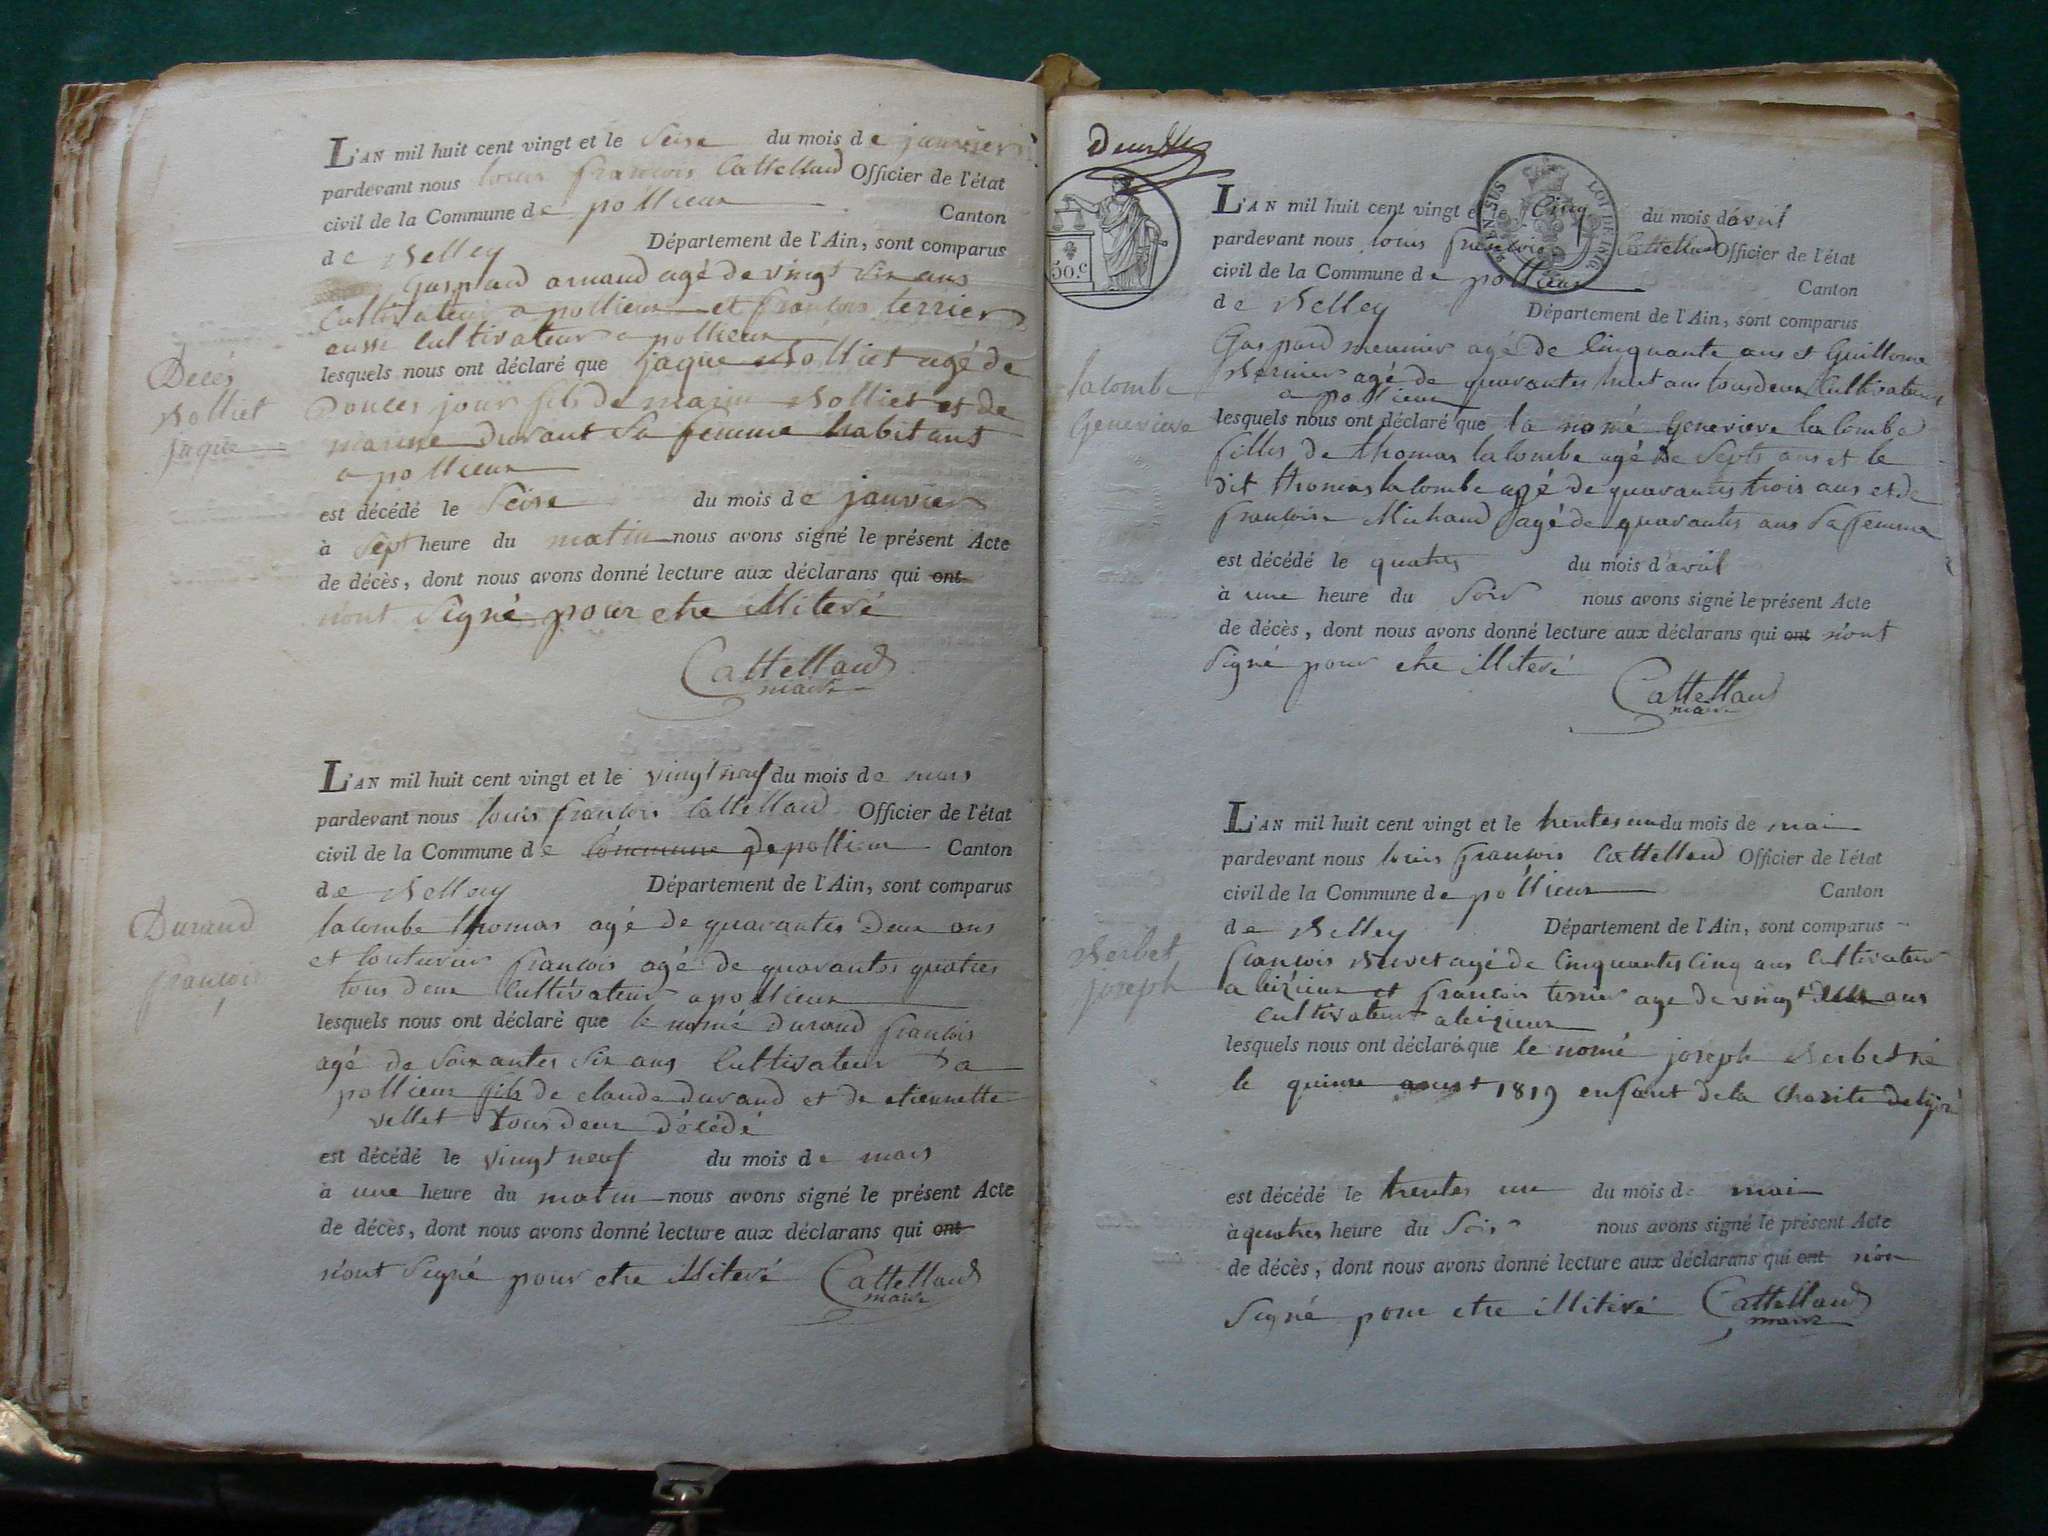 L'AN mil huit cent vingt et le Seise du mois de janvier
pardevant nous louis françois Cattelland Officier de l'état
civil de la Commune de pollieux Canton
de Belley Département de l'Ain, sont comparus
Gaspard arnaud agé de vingt six ans
Cultivateur a pollieux et françois terrier
aussi Cultivateur a pollieux
lesquels nous ont déclaré que jaque Bolliet agé de
Décés
Bolliet
jaque
Douces jour fils de marin Bolliet et de
marine durant Sa femme habitant
a pollieux
est décédé le Seise du mois de janvier
à Sept heure du matin nous avons signé le présent Acte
de décès, dont nous avons donné lecture aux déclarans qui ont
n'ont Signé pour etre illiteré
Cattelland
maire
L'AN mil huit cent vingt et le vingt neuf du mois de mars
pardevant nous louis françois Cattelland Officier de l'état
civil de la Commune de Commune de pollieux Canton
de Belley Département de l'Ain, sont comparus
Durand
françois
lacombe thomas agé de quarantes deux ans
et Couturier françois agé de quarantes quatres
tous deux Cultivateur a pollieux
lesquels nous ont déclaré que le nomé durand françois
agé de Soixantes Six ans Cultivateur a
pollieux fils de claude durand et de etiennette
vellet tous deux décédé
est décédé le vingt neuf du mois de mars
à une heure du matin nous avons signé le présent Acte
de décès, dont nous avons donné lecture aux déclarans qui ont
n'ont Signé pour etre illiteré Cattelland
maire
50.c
LOI DE 1816
L'AN mil huit cent vingt et le Cinq du mois d'avril
pardevant nous louis françois Cattelland Officier de l'état
civil de la Commune de pollieux Canton
de Belley Département de l'Ain, sont comparus
Gaspard meunier agé de Cinquante ans et Guillome
Bernier agé de quarantes huit ans tous deux Cultivateur
a pollieux
lacombe
Genevieve
lesquels nous ont déclaré que la nomé Genevieve lacombe
filles de thomas lacombe agé de Septs ans et le
dit thomas lacombe agé de quarantes trois ans et de
françoise Michaud agé de quarantes ans Sa femme
est décédé le quatres du mois d'avril
à une heure du Soir nous avons signé le présent Acte
de décès, dont nous avons donné lecture aux déclarans qui ont n'ont
Signé pour etre illiteré
Cattelland
maire
L'AN mil huit cent vingt et le trentes un du mois de mai
pardevant nous louis françois Cattelland Officier de l'état
civil de la Commune de pollieux Canton
de Belley Département de l'Ain, sont comparus
Berbet
joseph
françois Buvet agé de Cinquantes Cinq ans Cultivateur
a leizieux et françois terrier age de vingt ans
Cultivateur a leizieux
lesquels nous ont déclaré que le nomé joseph Berbet né
le quinse aoust 1819 enfant de la Charite de
est décédé le trentes un du mois de mai
à quatres heure du Soir nous avons signé le présent Acte
de décès, dont nous avons donné lecture aux déclarans qui ont n'on
Signé pour etre illiteré Cattelland
maire